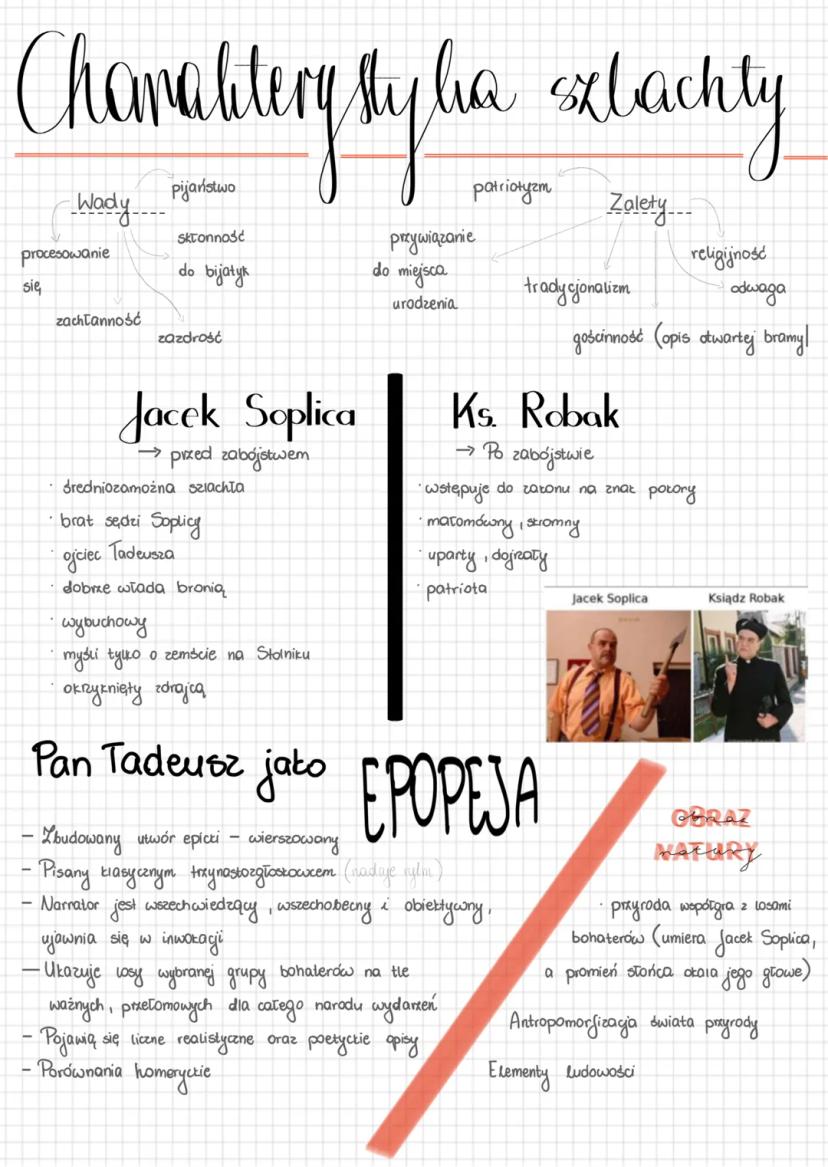 Charakterystyka szlachty
Wady
pijaństwo
skłonność
do bijatyk
procesowanie
się
zachłanność
zazdrość
Zalety
patriotyzm
przywiązanie
do miejsca
urodzenia
tradycjonalizm
religijność
odwaga
gościnność (opis otwartej bramy)
Jacek Soplica
→ przed zabójstwem
· średniozamożna szlachta
· brat sędzi Soplicy
· ojciec Tadeusza
· dobrze włada bronią
· wybuchowy
· myśli tylko o zemście na Stolniku
· okrzyknięty zdrajcą
Ks. Robak
→ Po zabójstwie
· wstępuje do zakonu na znak pokory
· małomówny, skromny
· uparty, dojrzały
· patriota
Jacek Soplica
Ksiądz Robak
Pan Tadeusz jako EPOPEJA
- Zbudowany utwór epicki - wierszowany
- Pisany klasycznym trzynastozgłoskowcem (nadaje rytm)
- Narrator jest wszechwiedzący, wszechobecny i obiektywny,
ujawnia się w inwokacji
- Ukazuje losy wybranej grupy bohaterów na tle
ważnych, przełomowych dla całego narodu wydarzeń
- Pojawią się liczne realistyczne oraz poetyckie opisy
- Porównania homeryckie
OBRAZ obraz
NATURY natury
· przyroda współgra z losami
bohaterów (umiera Jacek Soplica,
a promień słońca okala jego głowę)
Antropomorfizacja świata przyrody
Elementy ludowości